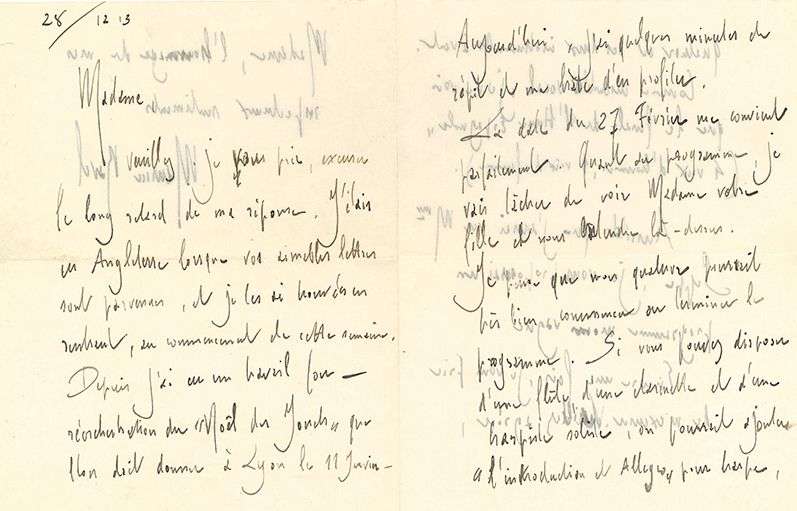 28/12 13
Madame
veuillez, je vous prie, excuser
le long retard de ma réponse. J'étais
en Angleterre lorsque vos aimables lettres
sont parvenues, et je les ai trouvées en
rentrant, au commencement de cette semaine.
Depuis j'ai eu un travail fou —
réorchestration du "Noël des Jouets" que
l'on doit donner à Lyon le 11 Janvier —
Aujourd'hui j'ai quelques minutes de
répit et me hâte d'en profiter.
La date du 27 Février me convient
parfaitement. Quant au programme, je
vais tâcher de voir Madame votre
fille et nous entendre là-dessus.
Je pense que mon quatuor pourrait
très bien commencer ou terminer le
programme. Si vous pouvez disposer
d'une flûte, d'une clarinette et d'une
harpiste soliste, on pourrait ajouter
"l'introduction et Allegro" pour harpe,